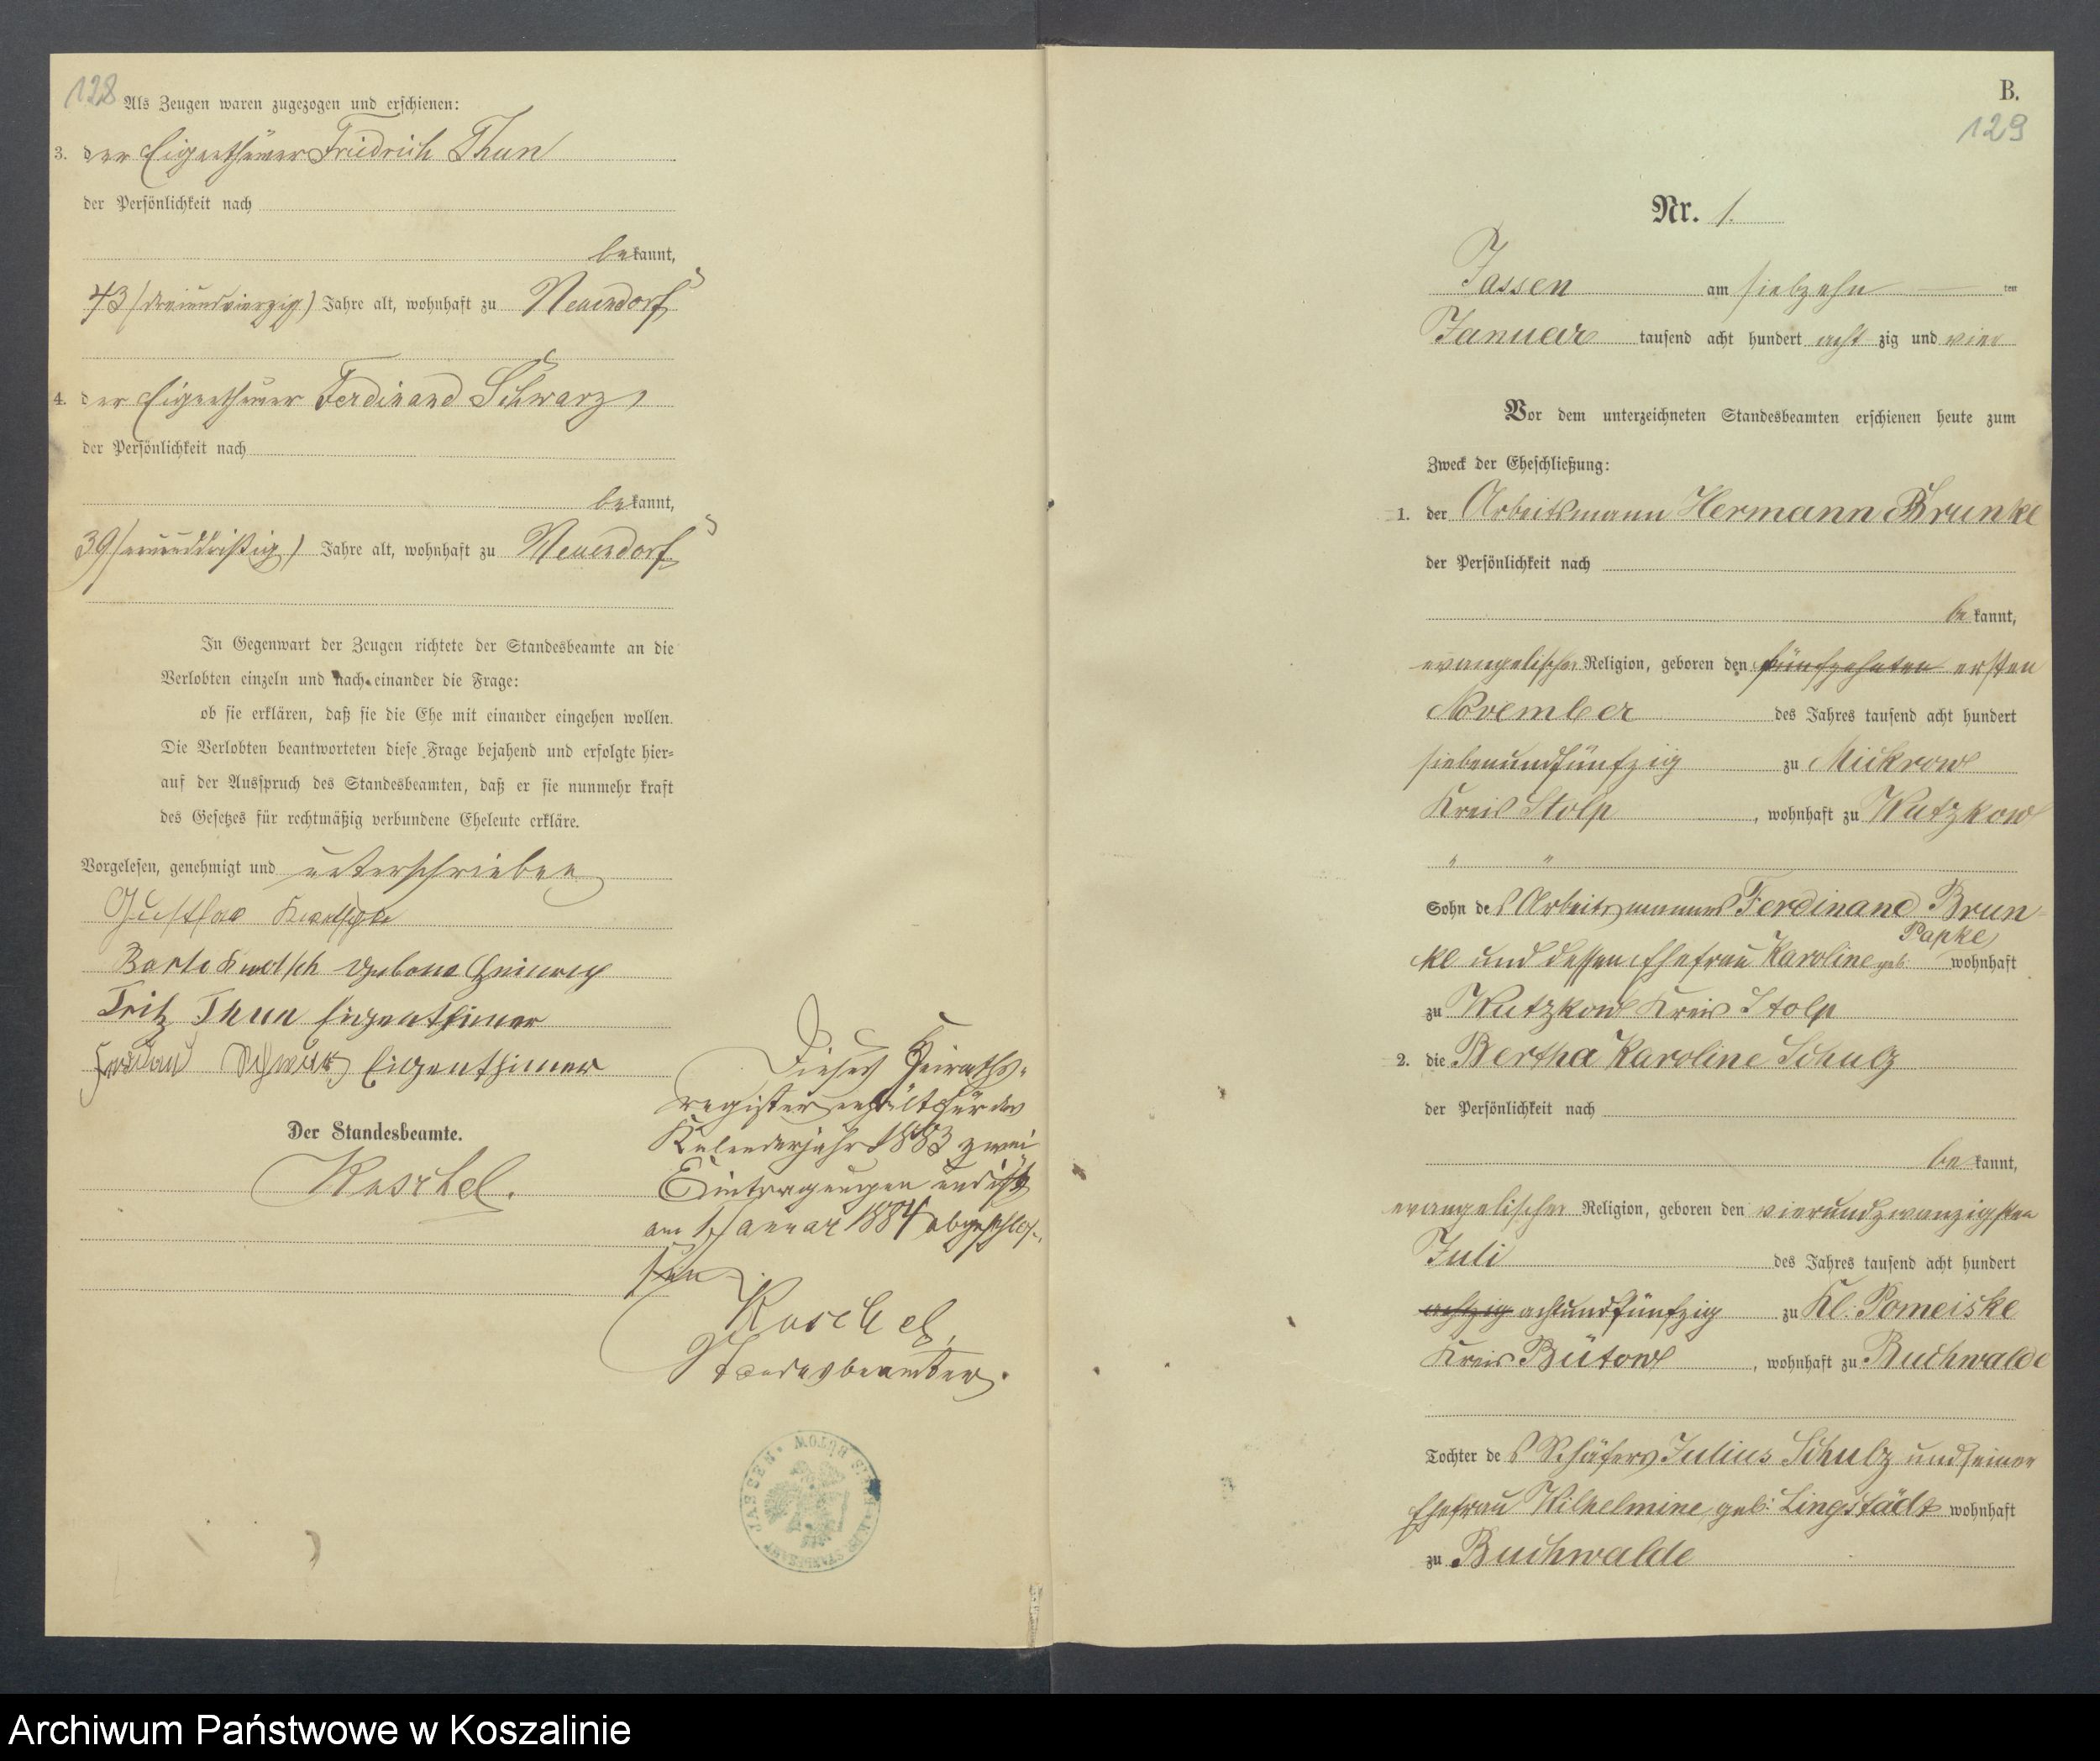 128
Als Zeugen waren zugezogen und erschienen:
3. der Eigenthümer Friedrich Thun
der Persönlichkeit nach
bekannt,
43 (dreiundvierzig) Jahre alt, wohnhaft zu Neuendorf
4. der Eigenthümer Ferdinand Schwarz
der Persönlichkeit nach
bekannt,
39 (neununddreißig) Jahre alt, wohnhaft zu Neuendorf
In Gegenwart der Zeugen richtete der Standesbeamte an die
Verlobten einzeln und nach einander die Frage:
ob sie erklären, daß sie die Ehe mit einander eingehen wollen.
Die Verlobten beantworteten diese Frage bejahend und erfolgte hier=
auf der Ausspruch des Standesbeamten, daß er sie nunmehr kraft
des Gesetzes für rechtmäßig verbundene Eheleute erkläre.
Vorgelesen, genehmigt und unterschrieben
Gustav
Fritz Thun Eigenthümer
Eigenthümer
Der Standesbeamte.
Raschel.
Dieses Heiraths-
register enthält für das
Kalenderjahr 1883 zwei
Eintragungen und ist
am 1. Januar 1884 abgeschlos-
sen.
Raschel,
Standesbeamter.
JASSEN · KR. BÜTOW
B.
129
Nr. 1.
Jassen am siebzehn ten
Januar tausend acht hundert acht zig und vier
Vor dem unterzeichneten Standesbeamten erschienen heute zum
Zweck der Eheschließung:
1. der Arbeitsmann Hermann Brunke
der Persönlichkeit nach
be kannt,
evangelischer Religion, geboren den fünfzehnten ersten
November des Jahres tausend acht hundert
siebenundfünfzig zu Mickrow
Kreis Stolp, wohnhaft zu Wutzkow
" "
Sohn des Arbeitsmannes Ferdinand Brun-
Papke
ke und dessen Ehefrau Karoline geb. wohnhaft
zu Wutzkow Kreis Stolp
2. die Bertha Karoline Schulz
der Persönlichkeit nach
be kannt,
evangelischer Religion, geboren den vierundzwanzigsten
Juli des Jahres tausend acht hundert
achtzig achtundfünfzig zu Kl: Pomeiske
Kreis Bütow, wohnhaft zu Buchwalde
Tochter des Schäfers Julius Schulz und seiner
Ehefrau Wilhelmine geb: Lingstädt wohnhaft
zu Buchwalde
Archiwum Państwowe w Koszalinie